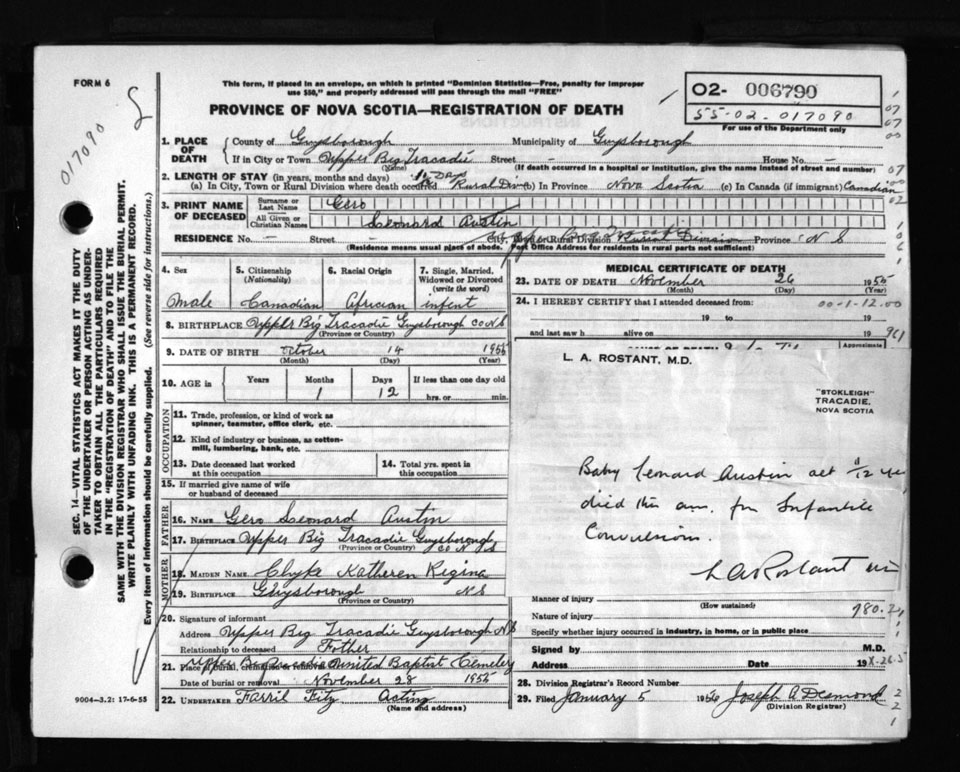 FORM 6
This form, if placed in an envelope, on which is printed "Dominion Statistics—Free, penalty for improper
use $50," and properly addressed will pass through the mail "FREE"
PROVINCE OF NOVA SCOTIA—REGISTRATION OF DEATH
O2- 006790
55-02-017090
For use of the Department only
017090
1. PLACE OF DEATH County of Guysborough Municipality of Guysborough
If in City or Town Upper Big Tracadie Street - House No. -
(Name) (If death occurred in a hospital or institution, give the name instead of street and number)
2. LENGTH OF STAY (in years, months and days)
(a) In City, Town or Rural Division where death occurred Rural Div (b) In Province Nova Scotia (c) In Canada (if immigrant) Canadian
3. PRINT NAME OF DECEASED Surname or Last Name Gero
All Given or Christian Names Leonard Austin
RESIDENCE No. - Street - City, Town or Rural Division Rural Division Province N S
(Residence means usual place of abode. Post Office Address for residents in rural parts not sufficient)
4. Sex 5. Citizenship (Nationality) 6. Racial Origin 7. Single, Married, Widowed or Divorced (write the word)
Male Canadian African infent
8. BIRTHPLACE Upper Big Tracadie Guysborough co N S
(Province or Country)
9. DATE OF BIRTH October 14 1955
(Month) (Day) (Year)
10. AGE in Years Months Days If less than one day old
1 12 hrs. or min.
OCCUPATION
11. Trade, profession, or kind of work as
spinner, teamster, office clerk, etc.
12. Kind of industry or business, as cotton-
mill, lumbering, bank, etc.
13. Date deceased last worked
at this occupation
14. Total yrs. spent in
this occupation
15. If married give name of wife
or husband of deceased
FATHER
16. NAME Gero Leonard Austin
17. BIRTHPLACE Upper Big Tracadie Guysborough
(Province or Country) co N S
MOTHER
18. MAIDEN NAME Clyke Katheren Regina
19. BIRTHPLACE Guysborough N S
(Province or Country)
20. Signature of informant
Address Upper Big Tracadie Guysborough N S
Relationship to deceased Father
21. Place of burial, cremation or removal United Baptist Cemetery
Date of burial or removal November 28 1955
22. UNDERTAKER Farril Fitz Acting
(Name and address)
9004—3.2: 17-6-55
MEDICAL CERTIFICATE OF DEATH
23. DATE OF DEATH November 26 1955
(Month) (Day) (Year)
24. I HEREBY CERTIFY that I attended deceased from:
00-1-12.00
19 to 19
and last saw h alive on 19
Approximate
L. A. ROSTANT, M.D.
"STOKLEIGH"
TRACADIE,
NOVA SCOTIA
Baby Leonard Austin aet 1/12 yr
died this am. from Infantile
Convulsion.
L A Rostant
Manner of injury
(How sustained)
Nature of injury 780.2
Specify whether injury occurred in industry, in home, or in public place
Signed by M.D.
Address Date 19
28. Division Registrar's Record Number
29. Filed January 5 1956 Joseph A Desmond
(Division Registrar)
SEC. 14—VITAL STATISTICS ACT MAKES IT THE DUTY
OF THE UNDERTAKER OR PERSON ACTING AS UNDER-
TAKER TO OBTAIN ALL THE PARTICULARS REQUIRED
IN THE "REGISTRATION OF DEATH" AND TO FILE THE
SAME WITH THE DIVISION REGISTRAR WHO SHALL ISSUE THE BURIAL PERMIT.
WRITE PLAINLY WITH UNFADING INK. THIS IS A PERMANENT RECORD.
Every item of information should be carefully supplied. (See reverse side for instructions.)